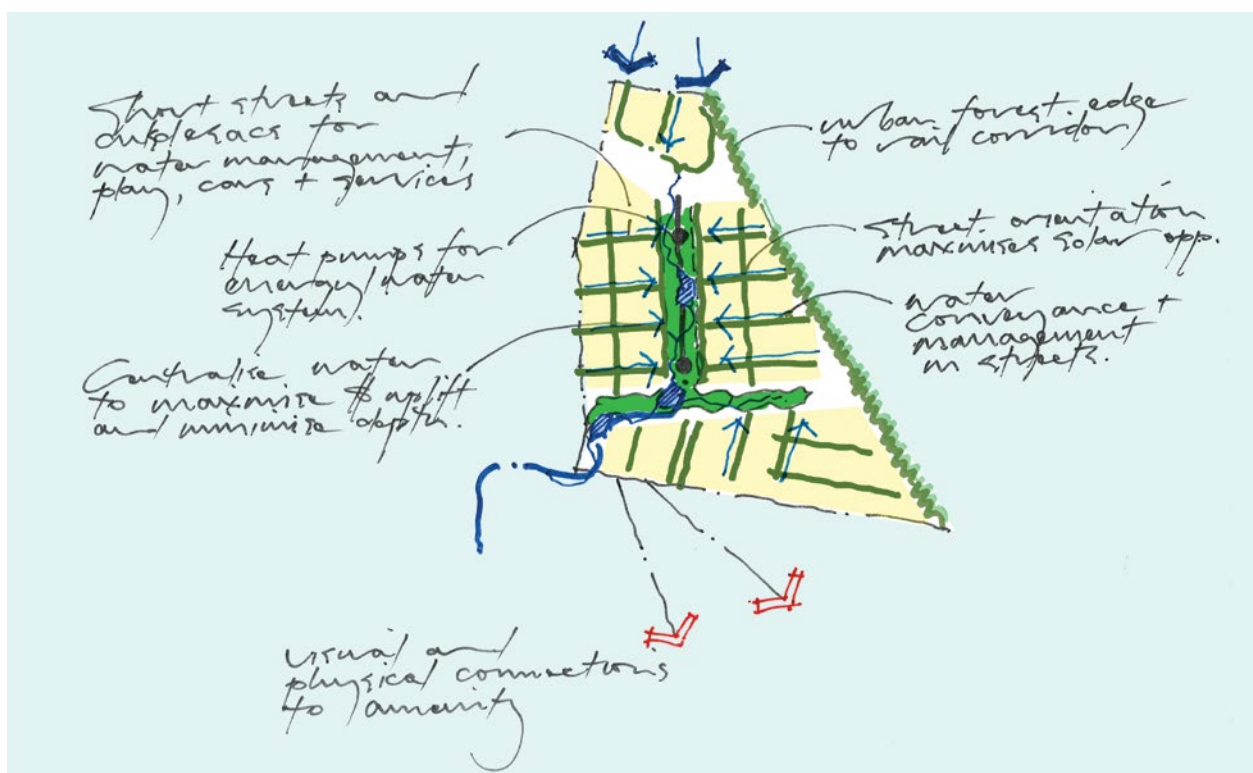 Short streets and
culdesacs for
water management,
play, cars + services
Heat pumps for
energy/water
system.
Centralise water
to maximise $ uplift
and minimise depth.
urban forest edge
to rail corridor
street orientation
maximises solar opp.
water
conveyance +
management
in streets.
visual and
physical connections
to amenity